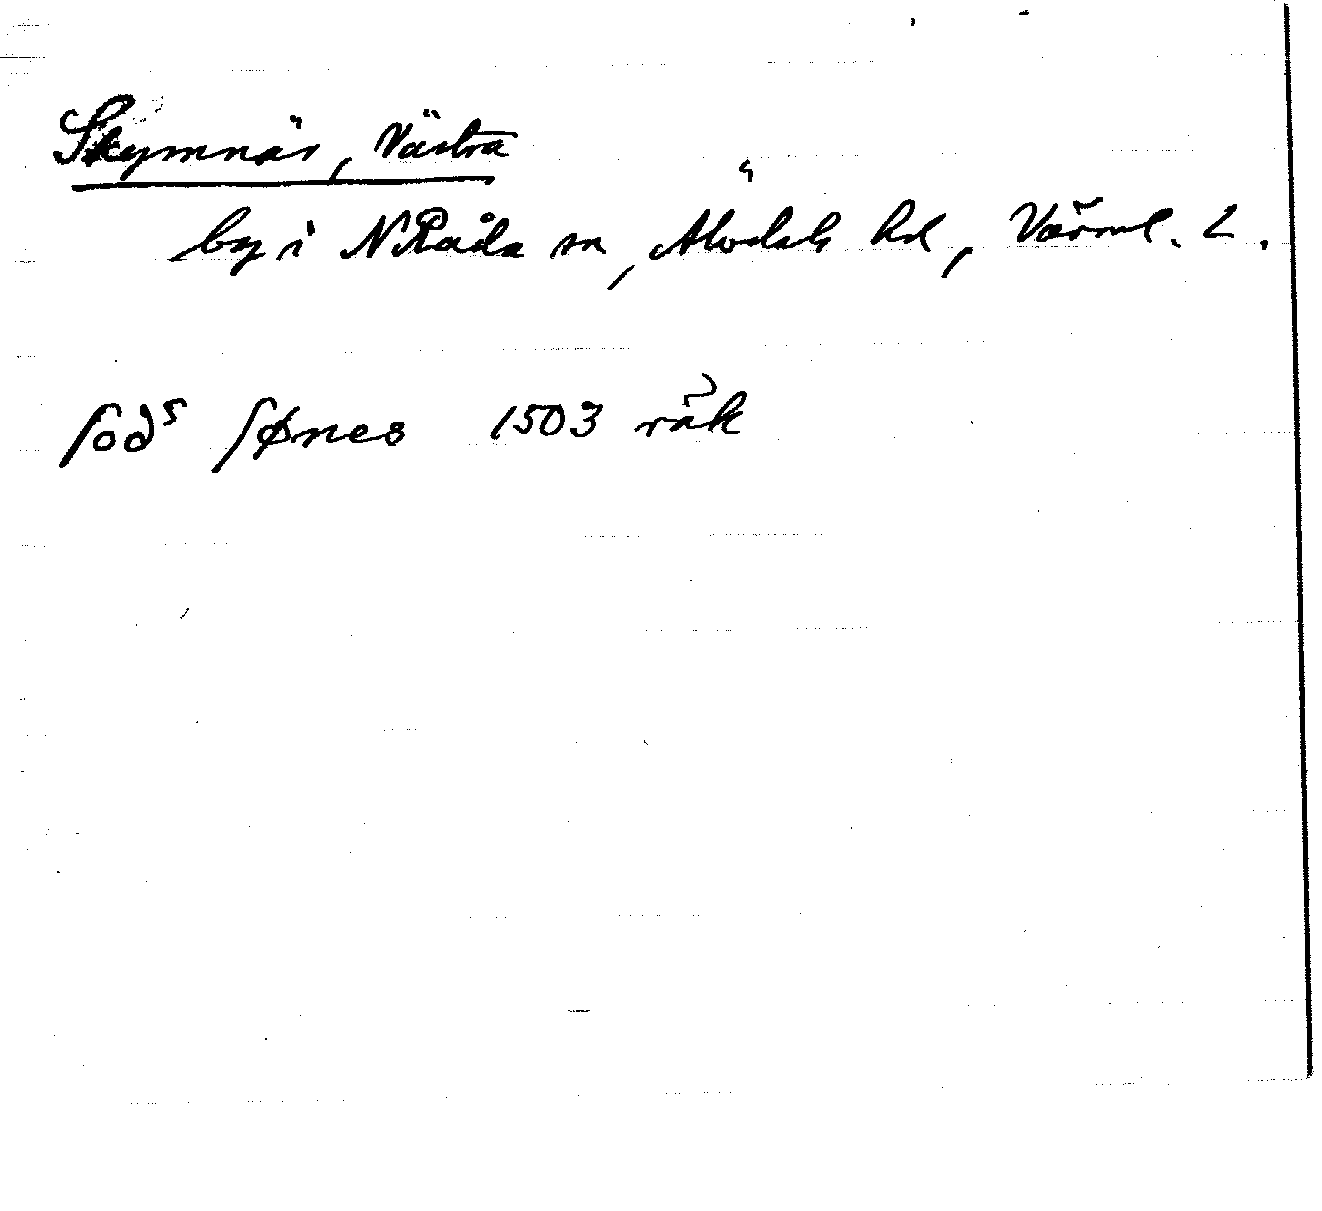 Skymnär, Västra
by i N Råda sn, Älvdals hd, Värml. L.
ſodˢ ſønes 1503 räk